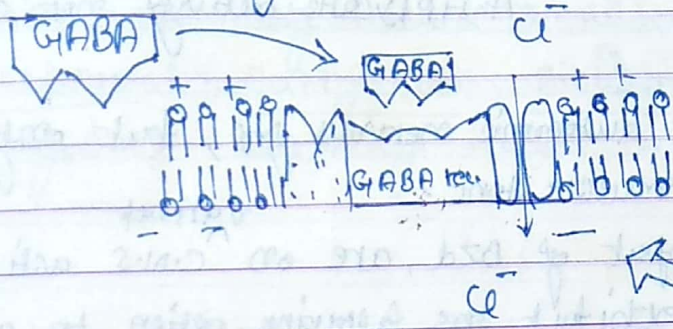 GABA
Cl⁻
GABA
+ + + +
GABA rec.
- - -
Cl⁻